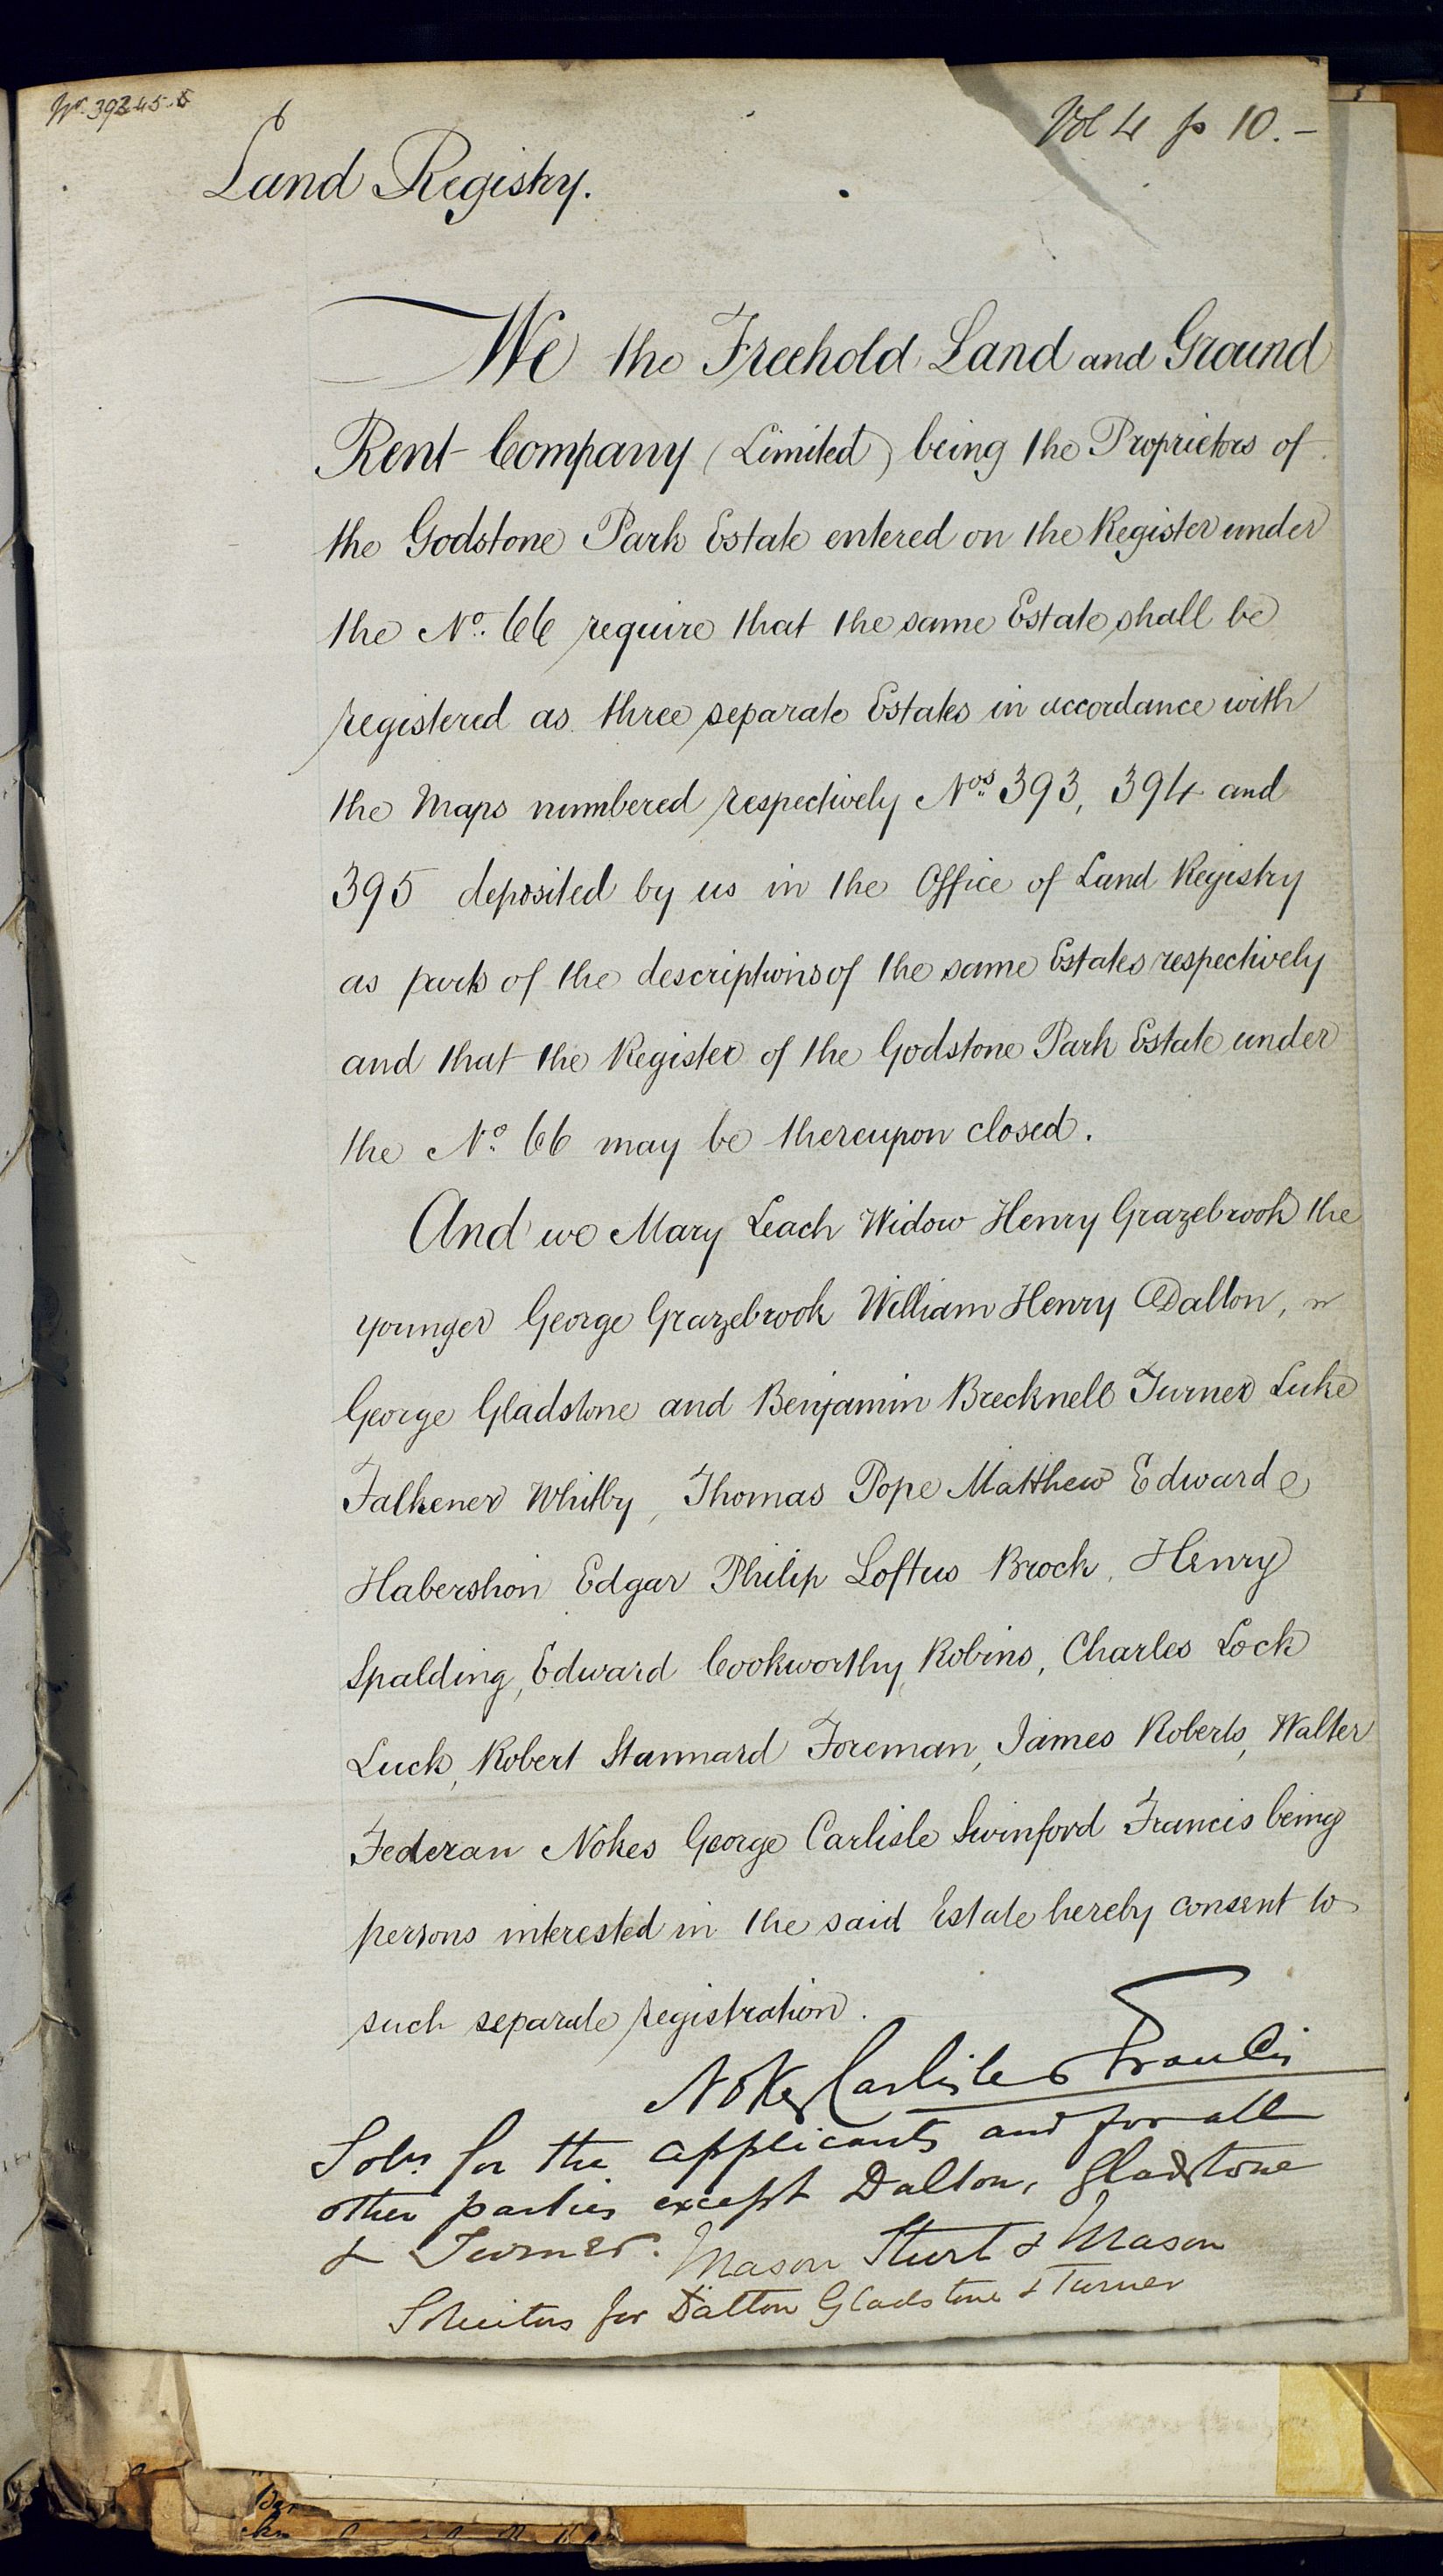 Vol 4 p 10. —
Land Registry.
We the Freehold Land and Ground
Rent Company (Limited) being the Proprietors of
the Godstone Park Estate entered on the Register under
the No. 66 require that the same Estate shall be
registered as three separate Estates in accordance with
the Maps numbered respectively Nos. 393, 394 and
395 deposited by us in the Office of Land Registry
as parts of the descriptions of the same Estates respectively
and that the Register of the Godstone Park Estate under
the No. 66 may be thereupon closed.
And we Mary Leach Widow Henry Grazebrook the
younger George Grazebrook William Henry Dalton,
George Gladstone and Benjamin Brecknell Turner Luke
Falkener Whitby, Thomas Pope Matthew Edward
Habershon Edgar Philip Loftus Brock, Henry
Spalding, Edward Cookworthy Robins, Charles Lock
Luck, Robert Stannard Foreman, James Roberts, Walter
Federan Nokes George Carlisle Swinford Francis being
persons interested in the said Estate hereby consent to
such separate registration.
Nokes Carlisle & Francis
Solrs. for the applicants and for all
other parties except Dalton, Gladstone
& Turner. Mason Sturt & Mason
Solicitors for Dalton Gladstone & Turner